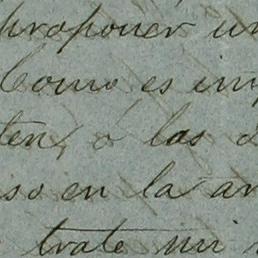 proponer un
Como es imp
ten, ó las
so en la an
trate mi